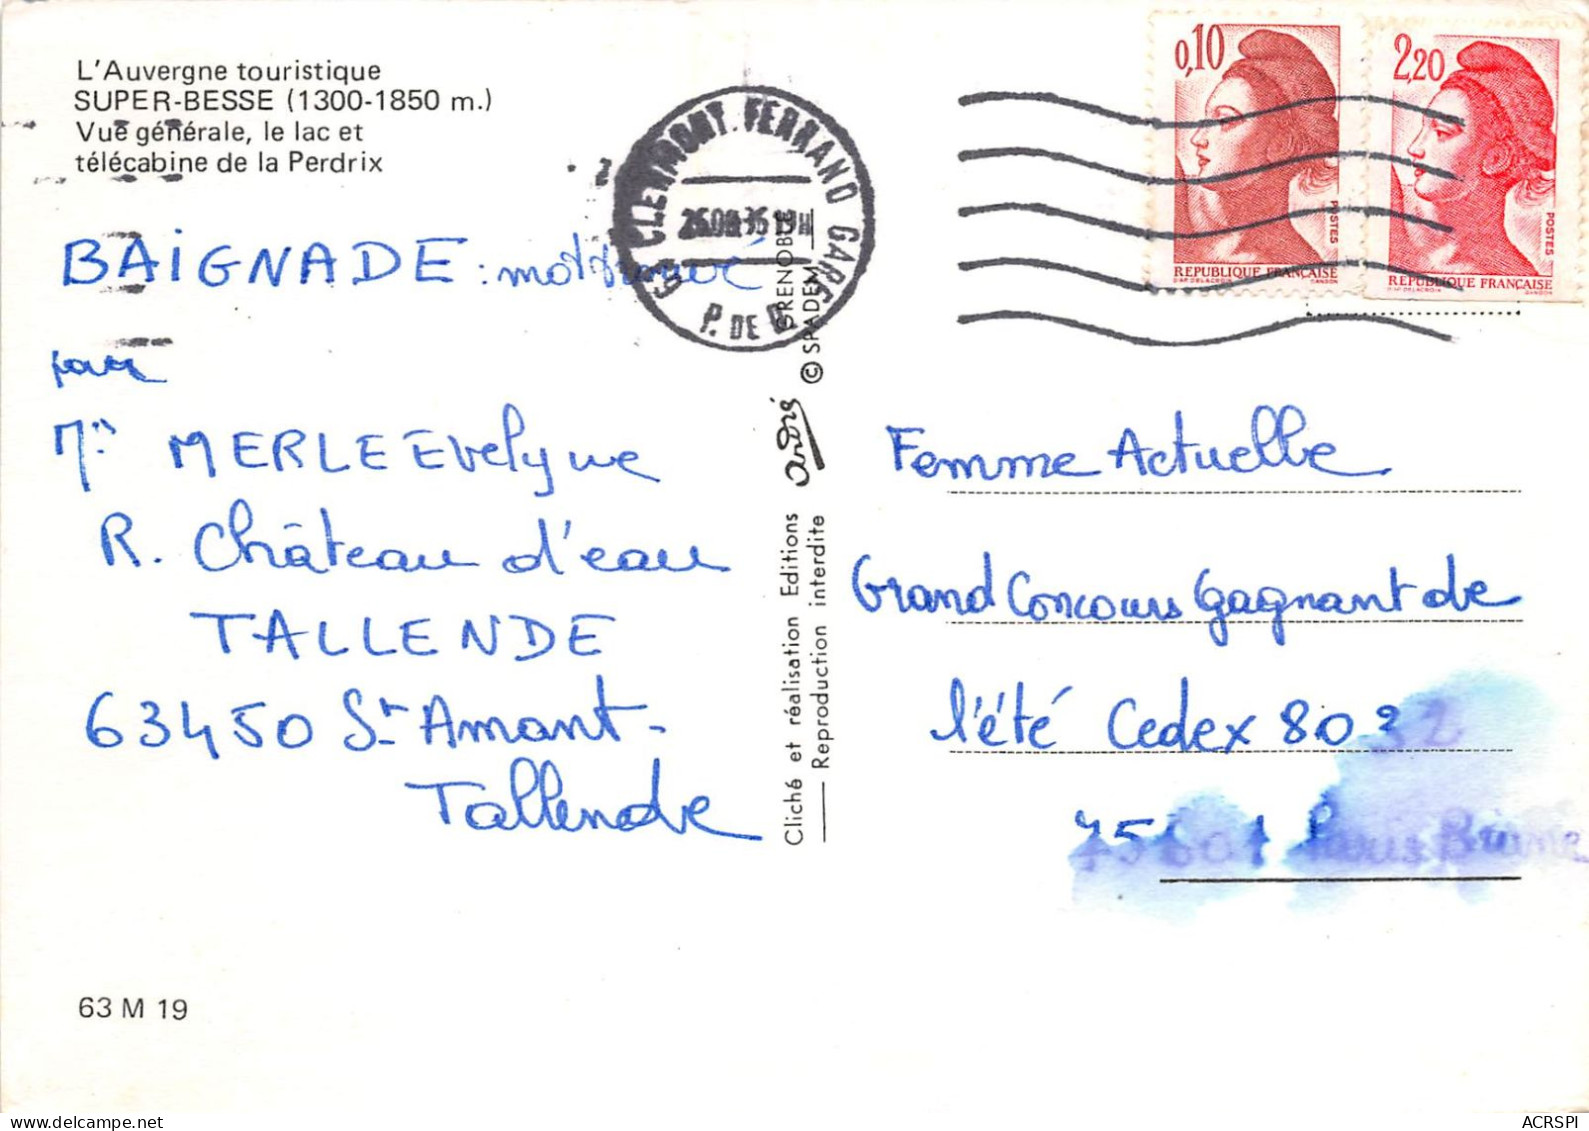 L'Auvergne touristique
SUPER-BESSE (1300-1850 m.)
Vue générale, le lac et
télécabine de la Perdrix
BAIGNADE : mot trouvé
par
MERLE Evelyne
R. Château d'eau
TALLENDE
63450 St Amant-
Tallende
63 M 19
63 CLERMONT-FERRAND GARE
P. DE D.
Cliché et réalisation Editions André GRENOBLE
Reproduction interdite © SPADEM
0,10
POSTES
REPUBLIQUE FRANÇAISE
D'AP. DELACROIX GANDON
2,20
POSTES
REPUBLIQUE FRANÇAISE
D'AP. DELACROIX GANDON
Femme Actuelle
Grand Concours Gagnant de
l'été Cedex 8032
Paris Brune
ACRSPI